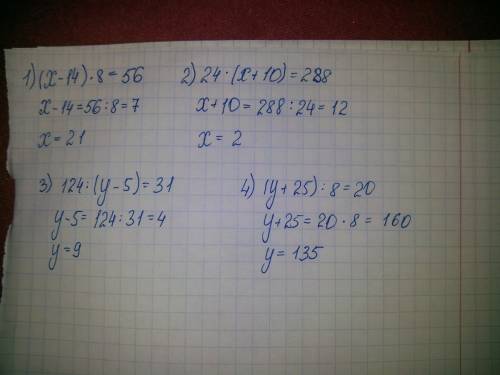 1) (x-14)·8=56
x-14=56:8=7
x=21
2) 24·(x+10)=288
x+10=288:24=12
x=2
3) 124:(y-5)=31
y-5=124:31=4
y=9
4) (y+25):8=20
y+25=20·8=160
y=135